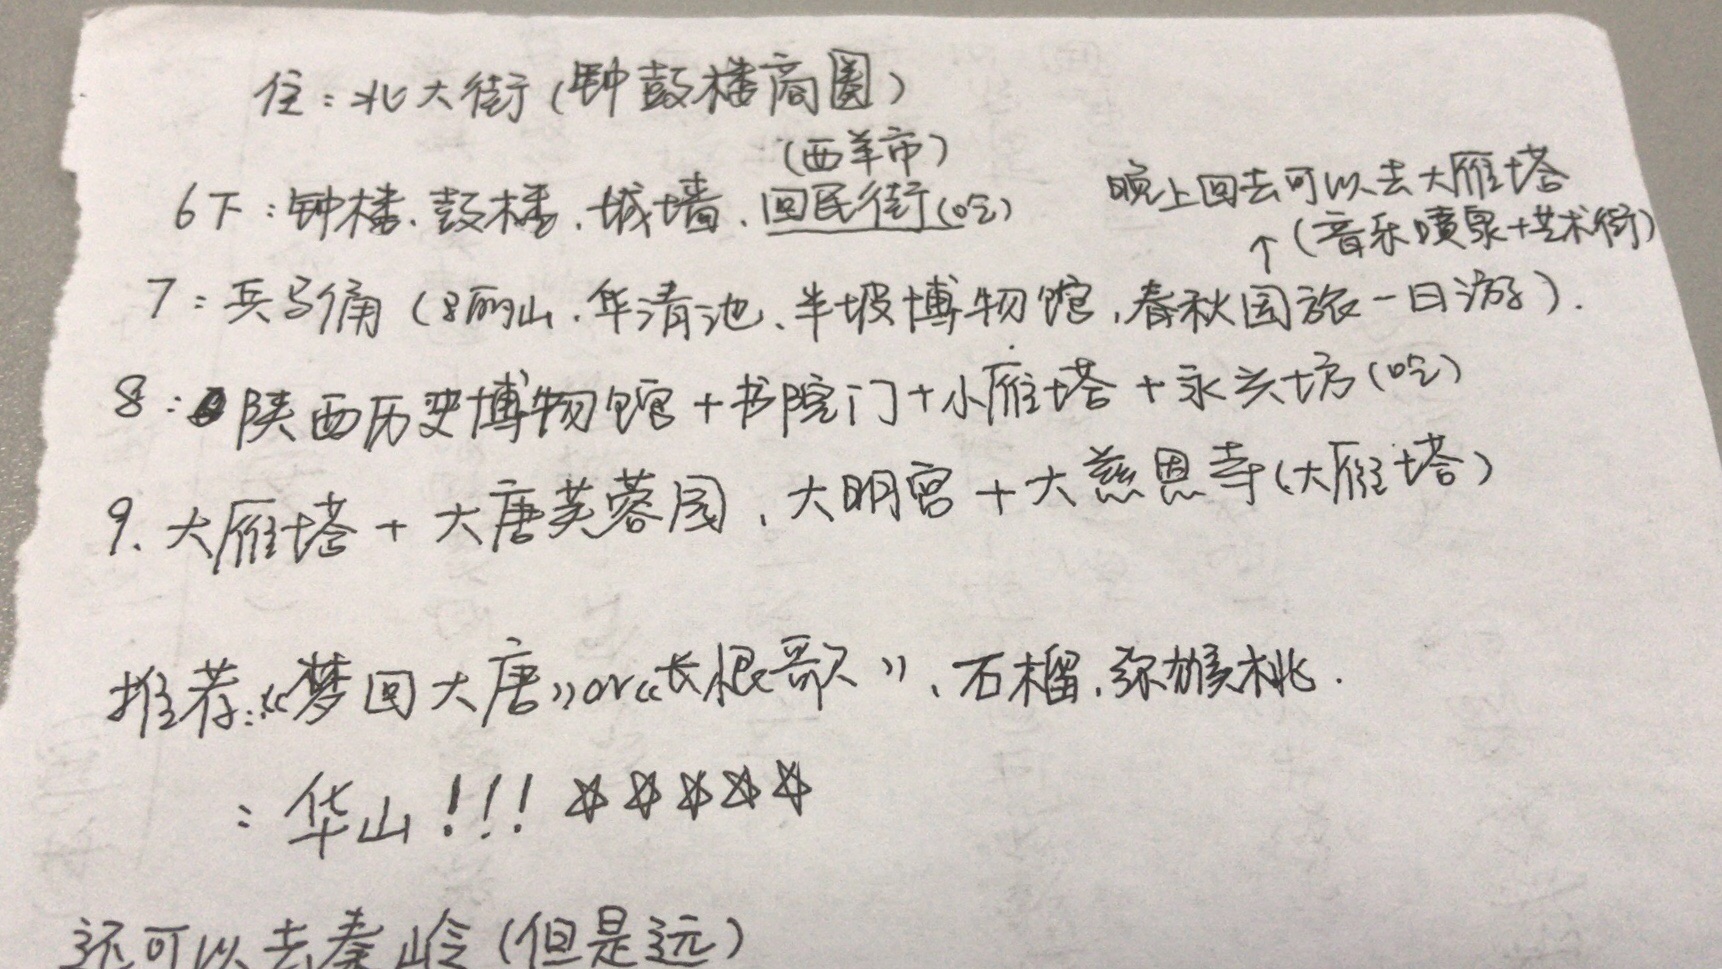 住：北大街（钟鼓楼商圈）
（西羊市）
6下：钟楼、鼓楼、城墙、回民街（吃）
晚上回去可以去大雁塔
↑（音乐喷泉+艺术街）
7：兵马俑（骊山、华清池、半坡博物馆，春秋国旅一日游）.
8：陕西历史博物馆+书院门+小雁塔+永兴坊（吃）
9. 大雁塔+大唐芙蓉园、大明宫+大慈恩寺（大雁塔）
推荐：《梦回大唐》or《长恨歌》、石榴、弥猴桃.
：华山！！！☆☆☆☆☆
还可以去秦岭（但是远）